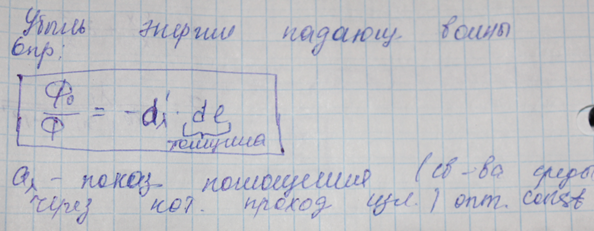 Убыль энергии падающ. волны
опр:
Φ₀/Φ = -a'λ · dl
толщина
aλ - показ поглощения (св-ва среды
через кот. проход изл.) опт. const